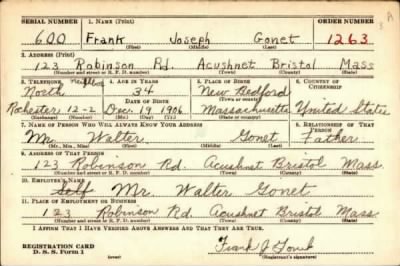 SERIAL NUMBER 1. NAME (Print) ORDER NUMBER
600 Frank Joseph Gonet 1263
(First) (Middle) (Last)
2. ADDRESS (Print)
123 Robinson Rd. Acushnet Bristol Mass
(Number and street or R. F. D. number) (Town) (County) (State)
3. TELEPHONE 4. AGE IN YEARS 5. PLACE OF BIRTH 6. COUNTRY OF CITIZENSHIP
North 34 New Bedford
DATE OF BIRTH (Town or county)
Rochester 12-2 Dec. 19 1906 Massachusetts United States
(Exchange) (Number) (Mo.) (Day) (Yr.) (State or country)
7. NAME OF PERSON WHO WILL ALWAYS KNOW YOUR ADDRESS 8. RELATIONSHIP OF THAT PERSON
Mr. Walter Gonet Father
(Mr., Mrs., Miss) (First) (Middle) (Last)
9. ADDRESS OF THAT PERSON
123 Robinson Rd. Acushnet Bristol Mass.
(Number and street or R. F. D. number) (Town) (County) (State)
10. EMPLOYER'S NAME
Self Mr Walter Gonet
11. PLACE OF EMPLOYMENT OR BUSINESS
123 Robinson Rd. Acushnet Bristol Mass.
(Number and street or R. F. D. number) (Town) (County) (State)
I AFFIRM THAT I HAVE VERIFIED ABOVE ANSWERS AND THAT THEY ARE TRUE.
REGISTRATION CARD
D. S. S. Form 1 Frank J Gonet
(Registrant's signature)